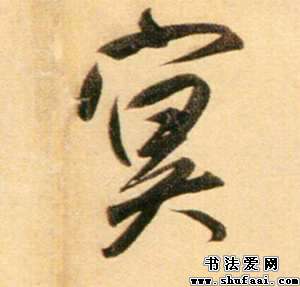 冥
书法爱网
www.shufaai.com